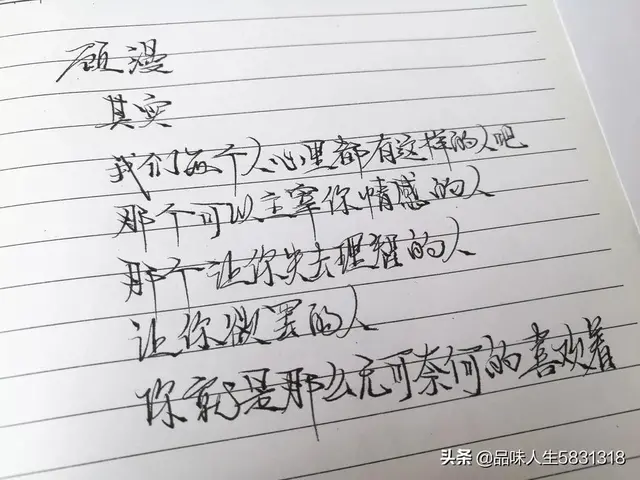 顾漫
其实
我们每个人心里都有这样的人吧
那个可以主宰你情感的人
那个让你失去理的人
让你罢的人
你就是那么无可奈何的喜欢着
头条 @品味人生5831318